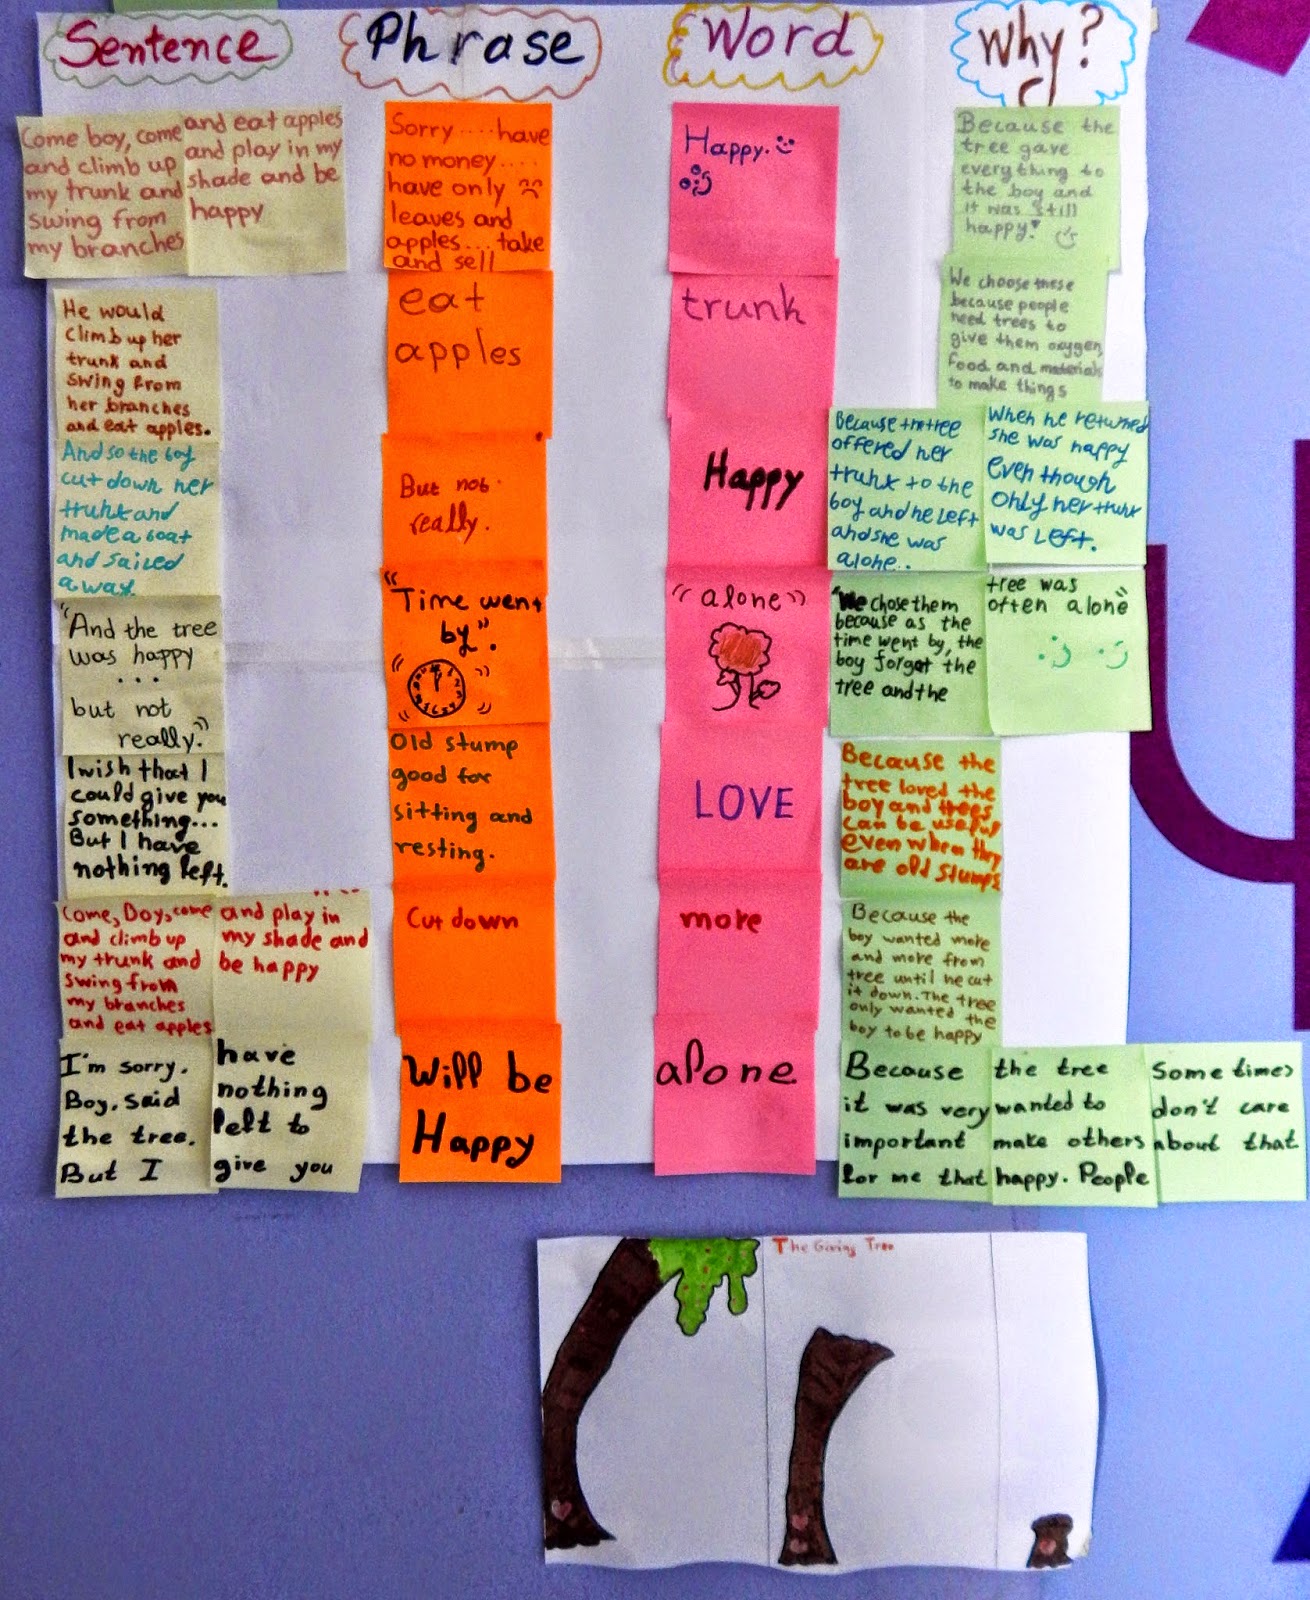 Sentence
Phrase
Word
Why?
Come boy, come
and climb up
my trunk and
swing from
my branches
and eat apples
and play in my
shade and be
happy
Sorry .... have
no money....
have only
leaves and
apples.... take
and sell
Happy.
Because the
tree gave
everything to
the boy and
it was still
happy!
He would
climb up her
trunk and
swing from
her branches
and eat apples.
eat
apples
trunk
We choose these
because people
need trees to
give them oxygen,
food and materials
to make things
And so the boy
cut down her
trunk and
made a boat
and sailed
away.
But not
really.
Happy
Because the tree
offered her
trunk to the
boy and he left
and she was
alone..
When he returned
she was happy
even though
only her trunk
was left.
"And the tree
was happy
...
but not
really."
"Time went
by".
"alone"
"We chose them
because as the
time went by, the
boy forgot the
tree and the
tree was
often alone"
I wish that I
could give you
something...
But I have
nothing left.
Old stump
good for
sitting and
resting.
LOVE
Because the
tree loved the
boy and trees
can be useful
even when they
are old stumps
Come, Boy, come
and climb up
my trunk and
swing from
my branches
and eat apples
and play in
my shade and
be happy
Cut down
more
Because the
boy wanted more
and more from
tree until he cut
it down. The tree
only wanted the
boy to be happy
I'm sorry.
Boy, said
the tree.
But I
have
nothing
left to
give you
Will be
Happy
alone
Because
it was very
important
for me that
the tree
wanted to
make others
happy. People
Sometimes
don't care
about that
The Giving Tree